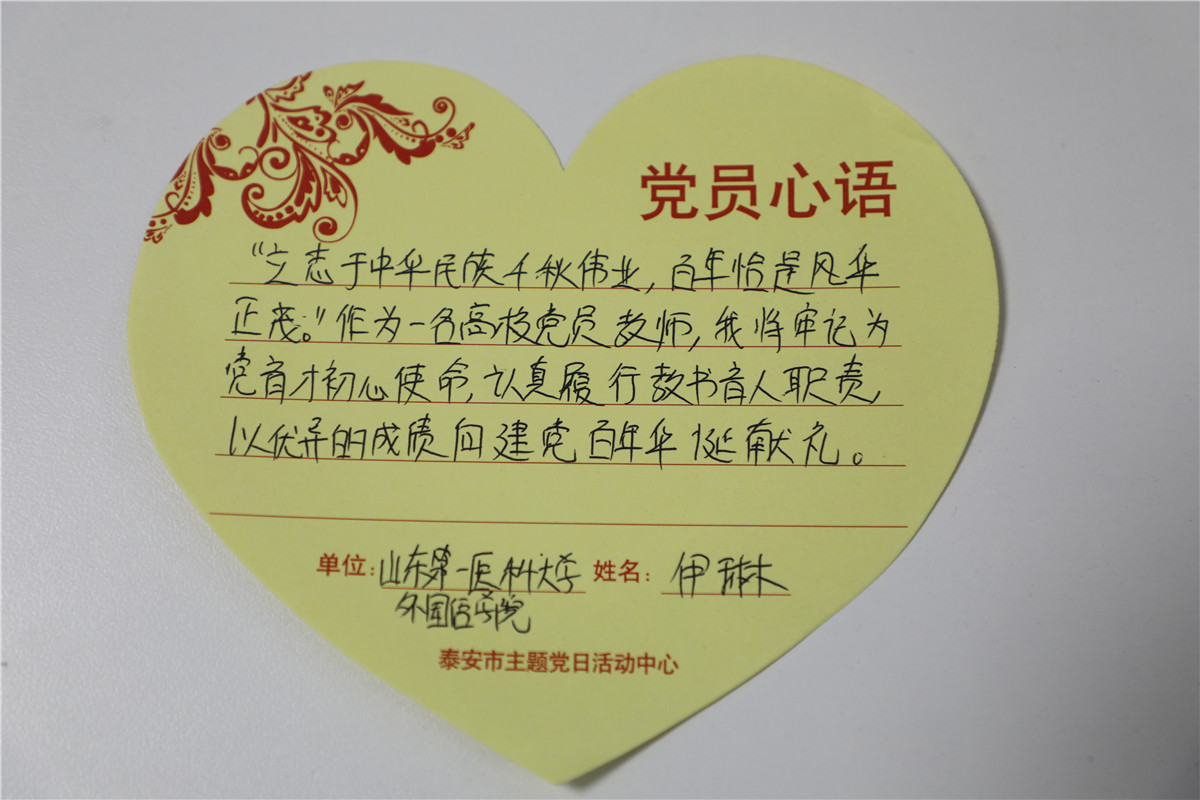 党员心语
“立志于中华民族千秋伟业，百年恰是风华
正茂。”作为一名高校党员教师，我将牢记为
党育才初心使命，认真履行教书育人职责，
以优异的成绩向建党百年华诞献礼。
单位：山东第一医科大学 姓名：伊琳
外国语学院
泰安市主题党日活动中心